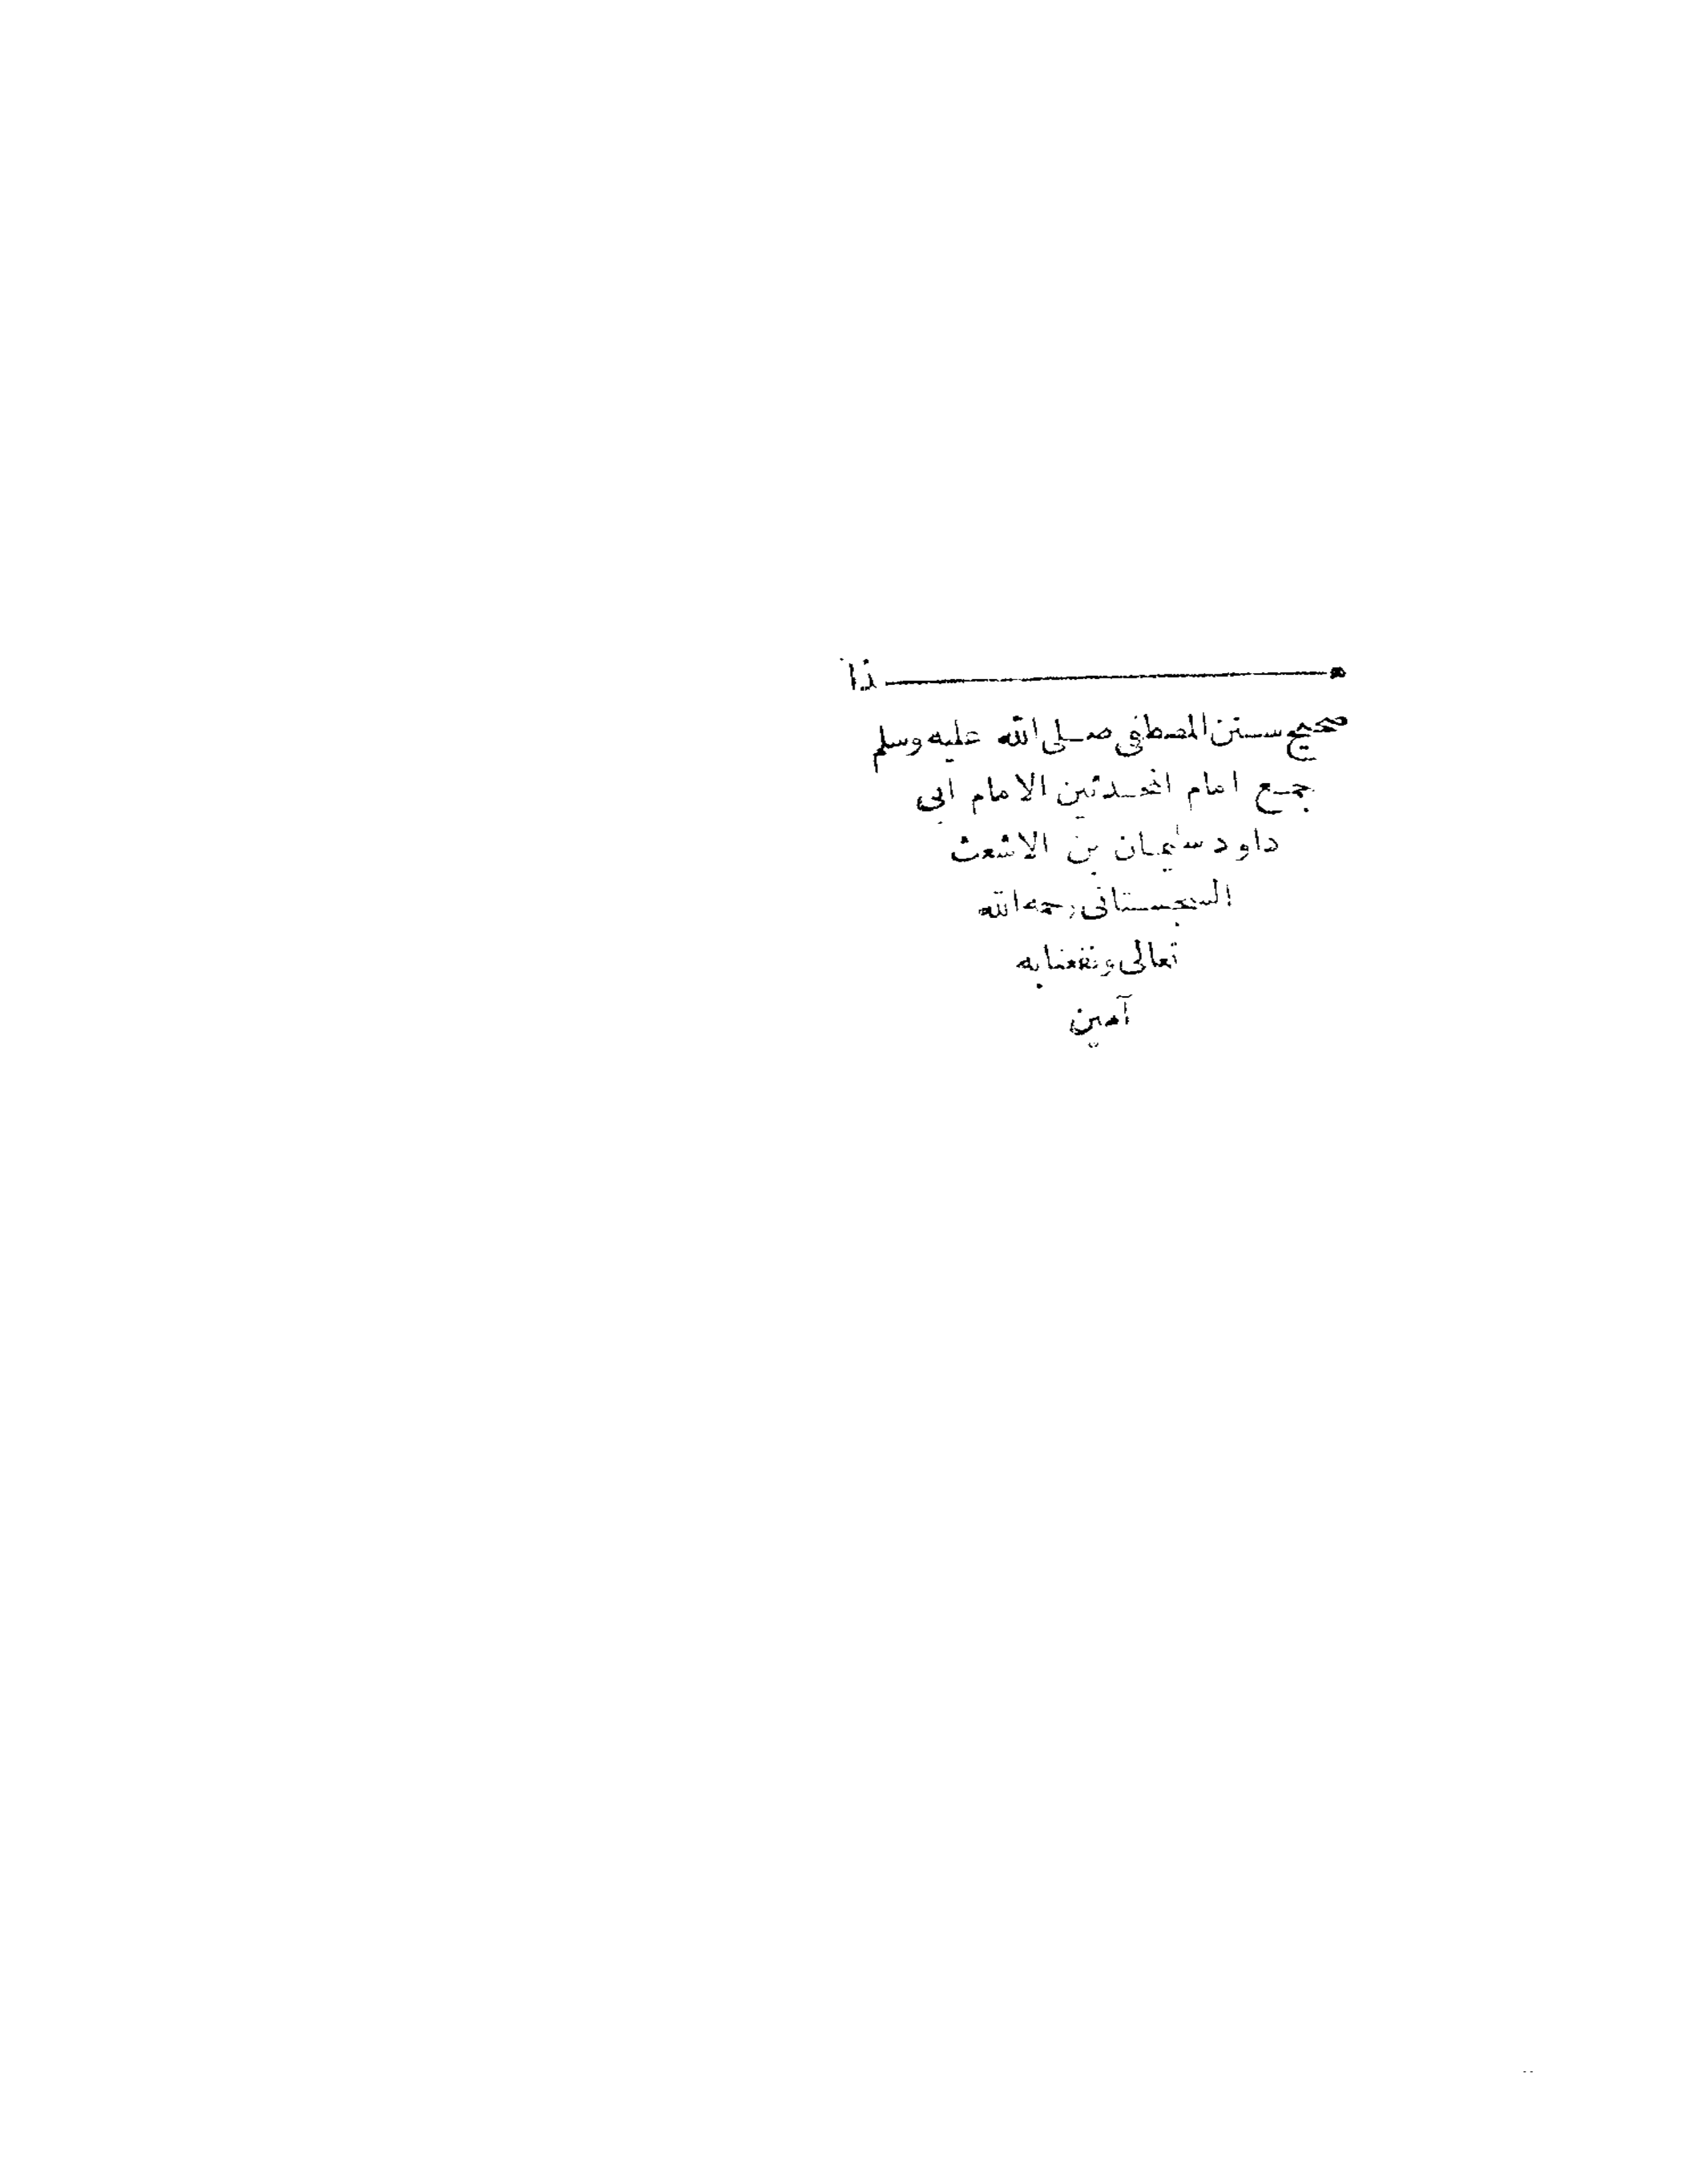 هـذا
صحيح سنن المصطفى صلى الله عليه وسلم
جمع امام المحدثين الامام ابى
داود سليمان بن الاشعث
السجستانى رحمه الله
تعالى ونفعنا به
آمين